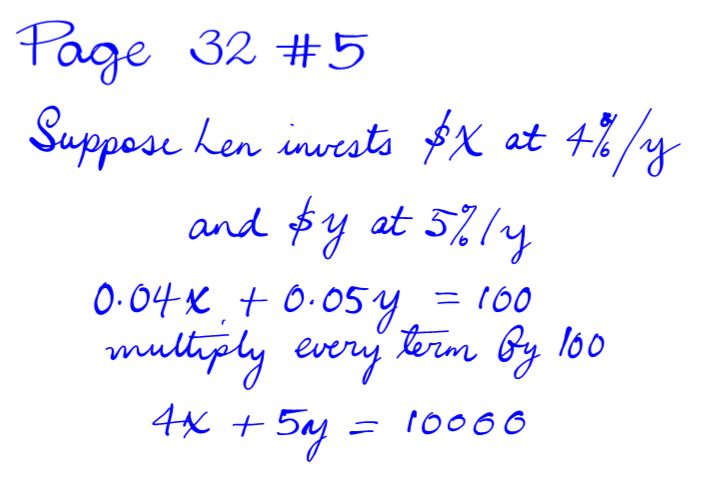 Page 32 #5
Suppose Len invests $x at 4%/y
and $y at 5%/y
0.04x + 0.05y = 100
multiply every term by 100
4x + 5y = 10000